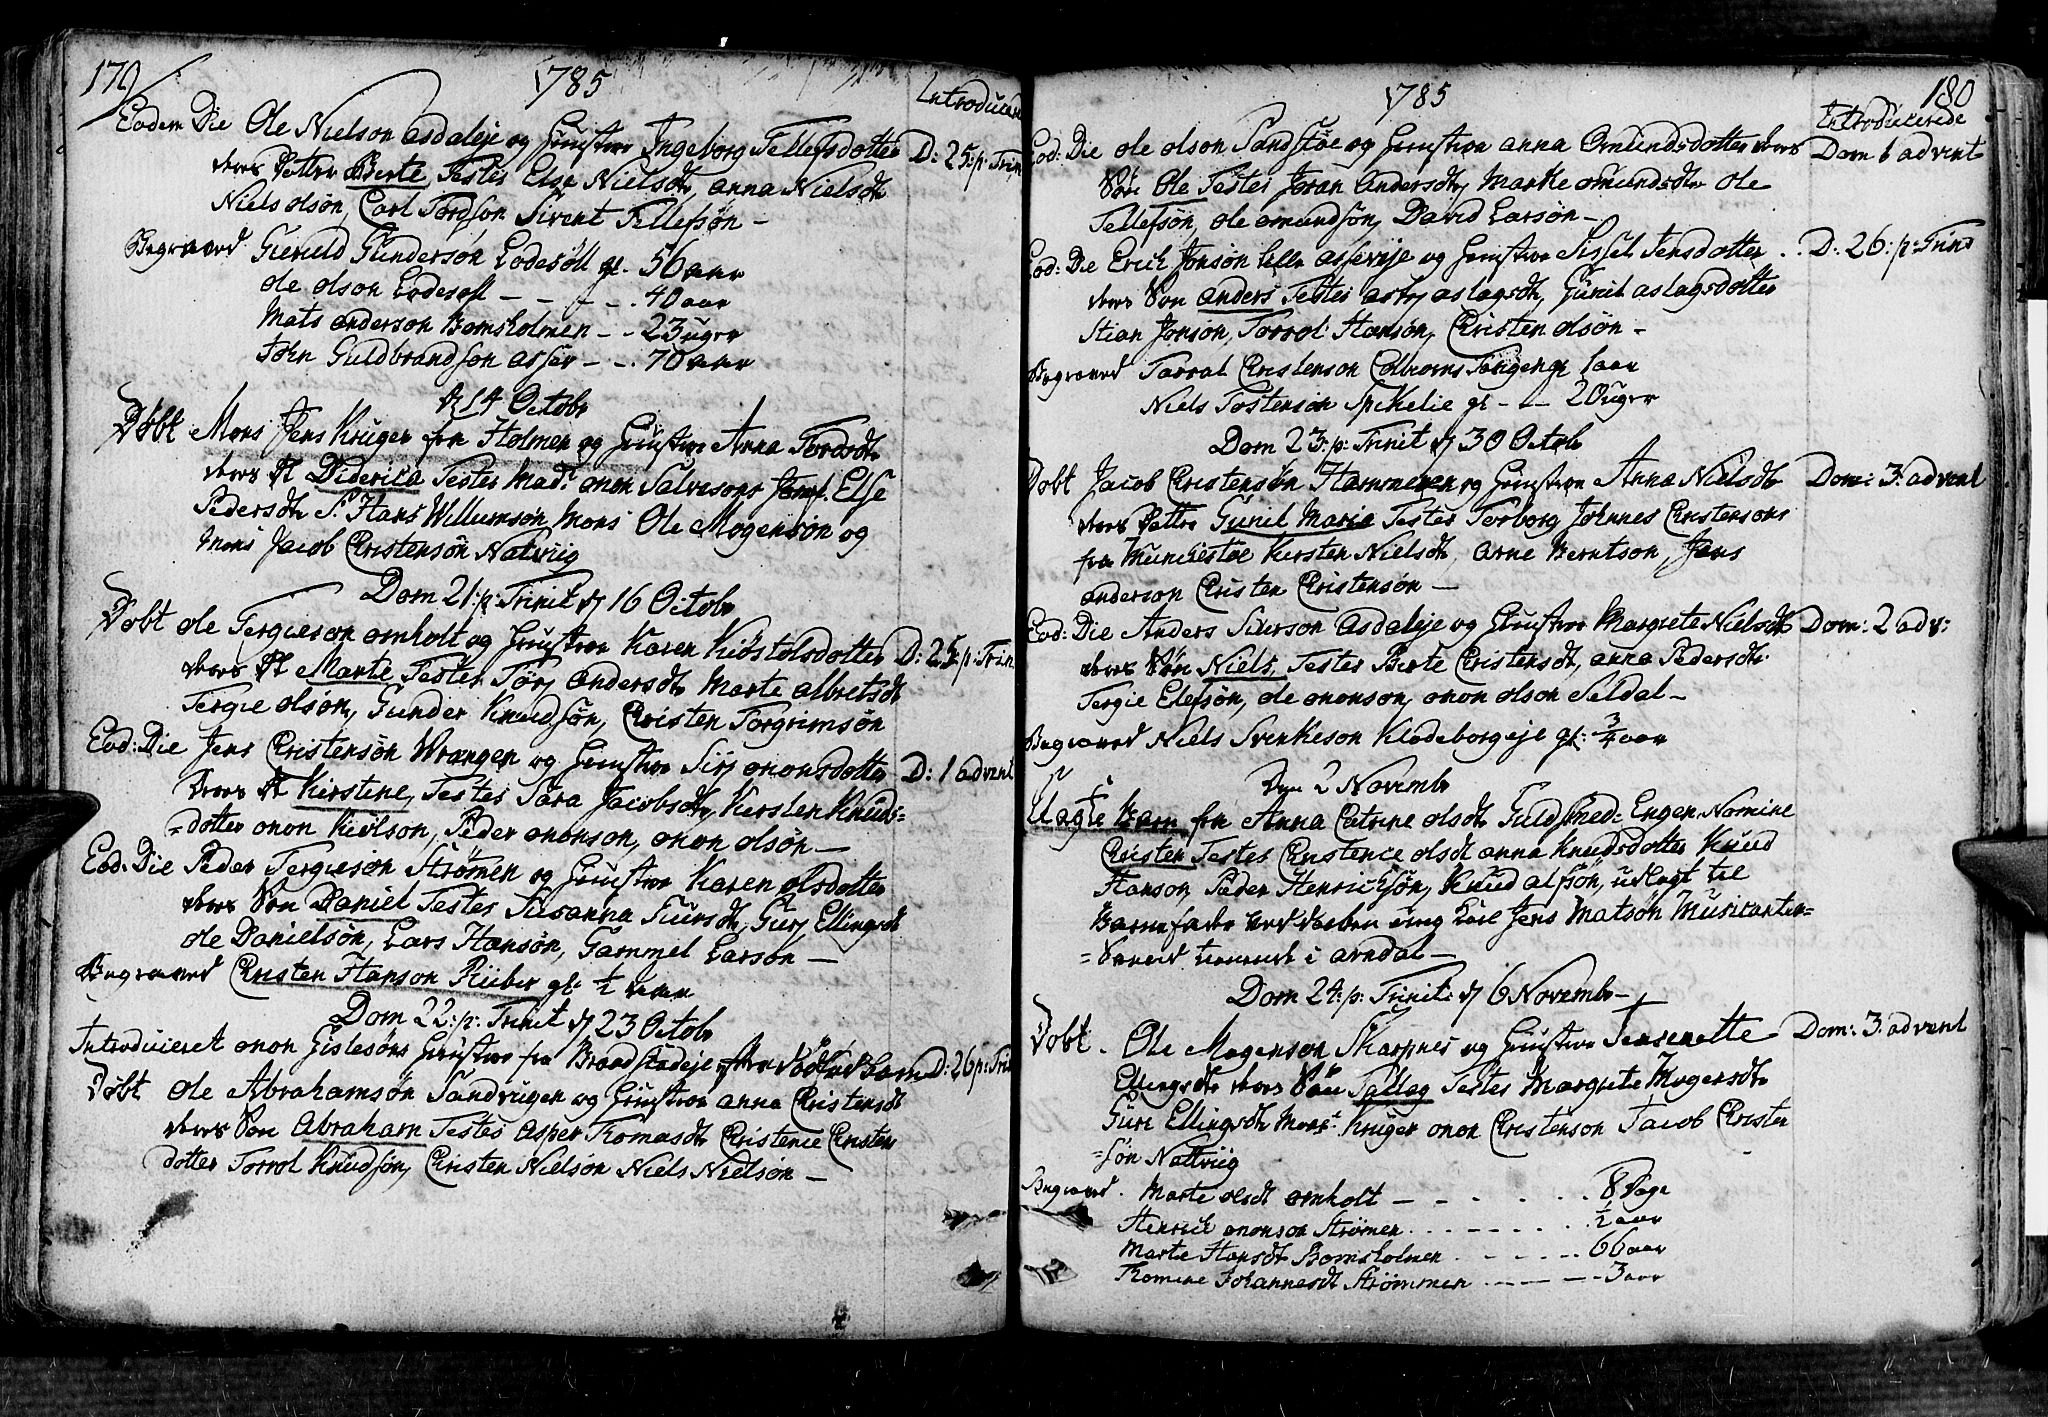 179
1785
Introducerede
Eodem Die Ole Nielson Asdaleje og Hrustroe Ingeborg Tellefsdotter D: 25: p: Trin
deres Dotter Berte Testes Else Nielsdt, Anna Nielsdt
Niels Olsøn, Carl Tordson Sivert Tellefsøn —
Begraved Gieruld Gundersøn Lodesøll gl. 56 aar
Ole Olson Lodesøll — — — . 40 aar
Mats Anderson Bomsholmen — . 23 uger
John Guldbrandson Asser — . 70 aar
d 14 Octobr
Døbt Mons Jens Kruger fra Holmen og Hrustroe Anna Tordsdt
deres dt Diderica Testes Mad: Onon Salvesons Jomf. Else
Pedersdt S. Hans Willumsøn, Mons Ole Mogensøn og
Mons Jacob Cristensøn Natviig
Dom 21: p: Trinit d 16 Octobr
Døbt Ole Tergieson Omholt og Hrustroe Karen Kiøstolsdotter D: 25: p: Trin
deres dt Marte Testes Torj Andersdt Marte Albretsdt
Tergie Olsøn, Gunder Knudsøn, Cristen Torgrimsøn
Eod: Die Jens Cristensøn Vrangen og Hrustroe Sirj Ononsdotter D: 1 Advent
deres dt Kirstene, Testes Sara Jacobsdt, Kirsten Knuds=
=dotter Onon Kiølson, Peder Ononson, Onon Olsøn —
Eod: Die Peder Tergieson Strømen og Hrustroe Karen Olsdotter
deres Søn Daniel Testes Susanna Siursdt, Gurj Ellingsdt
Ole Danielsøn, Lars Hansøn, Gammel Larsøn —
Begraved Cristen Hanson Riiber gl: 1/2 aar
Dom 22: p: Trinit d 23 Octobr
Introducieret Onon Gislesøns Hrustroe fra Braadstadeje, Dødfød barn D: 26 p: Trin
Døbt Ole Abrahamsøn Sandvigen og Hrustroe Anna Cristensdt
deres Søn Abraham Testes Asper Thomasdt Cristence Cristens
dotter Torrol Knudsøn, Cristen Nielsøn Niels Nielsøn —
1785
180
Introducerede
Eod: Die Ole Olson Sandstøe og Hrustroe Anna Omundsdotter deres Dom 1 advent
Søn Ole Testes Joran Andersdt, Marte Omundsdt Ole
Tellefsøn, Ole Omundsøn, David Larsøn —
Eod: Die Erich Jonsøn lille Assevije og Hrustroe Sissel Jensdotter . . D: 26: p: Trint
deres Søn Anders Testes Astj Aslagsdt, Gunil Aslagsdotter
Stian Jonsøn, Torrol Hansøn, Cristen Olsøn —
Begraved Tarral Cristenson Colbiorns Tangen gl 1 aar
Niels Tostensøn Spikelie gl — — 20 uger
Dom 23: p: Trinit d 30 Octob
Døbt Jacob Cristensøn Hammeren og Hrustroe Anna Nielsdt Dom: 3 advent
deres Dotter Gunil Maria Testes Torborg Johnnes Cristensøns
fra Mundestøe Kirsten Nielsdt, Arne Berntson, Jens
Anderson Cristen Cristensøn —
Eod: Die Anders Siurson Asdaleje og Hrustroe Margrete Nielsdt Dom: 2 adv:
deres Søn Niels, Testes Berte Cristensdt, Anna Pedersdt
Tergie Elefsøn, Ole Ononson, Onon Olson Seldal —
Begraved Niels Svenkeson Klodeborgeje gl: 3/4 aar
Den 2 Novembr
Uægte Barn fra Anna Catrine Olsdt Guldsmed: Engen, Nomine
Cristen Testes Cristence Olsdt Anna Knudsdotter Knud
Hanson, Peder Henrichsøn, Knud Alfsøn, udlagt til
Barnefader ved Daaben ung Karl Jens Matsøn Musicanter=
=Svend tienende i Arndal —
Dom 24: p: Trinit: d 6 Novembr —
Døbt . Ole Mogensøn Skarpnes og Hrustroe Jensenette Dom: 3 advent
Ellingsdt deres Søn Tallag Testes Margrete Mogensdt
Guri Ellingsdt Mons: Kruger Onon Cristenson Jacob Cristen
=søn Nattviig
Begraved . Marte Olsdt Omholt — . . . . . . 8 Dage
Henrich Ononson Strømen . . . . . . 1/2 aar
Marte Hansdt Bomsholmen . . . . . 66 aar
Thomine Johannesdt Strømmen — — — 3 aar